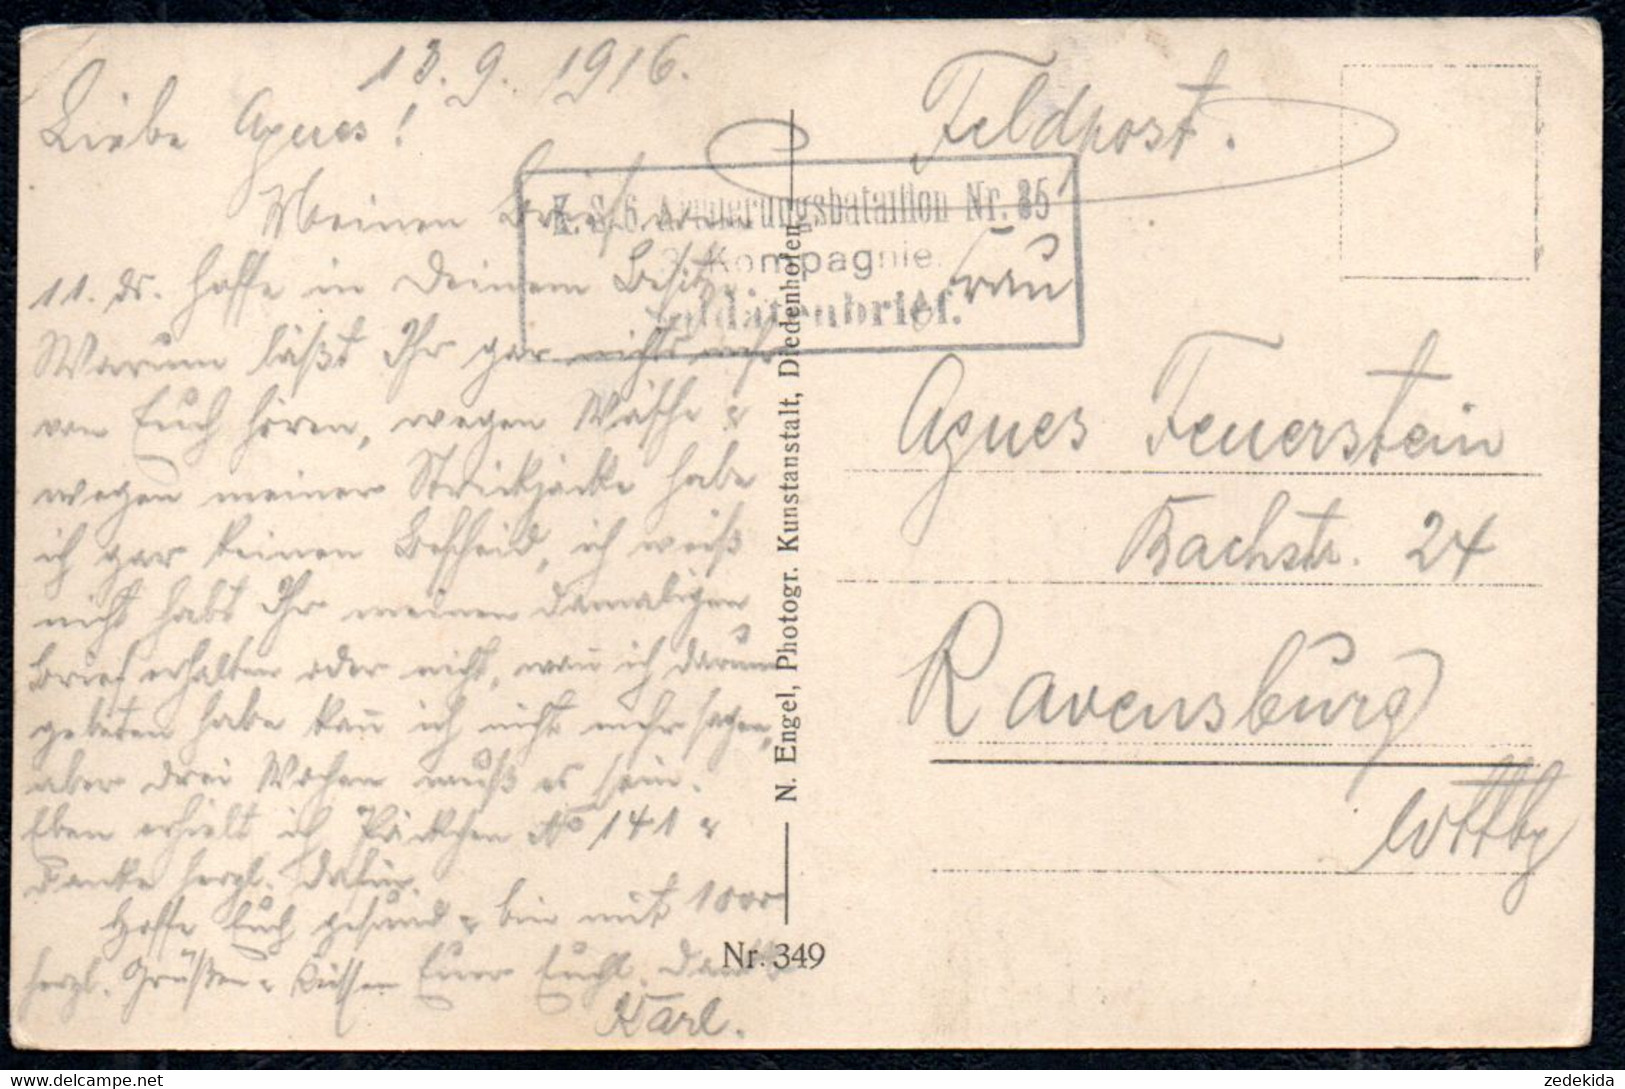 13. 9. 1916.
Liebe Agnes!
Meinen Brief vom
11. ds. hoffe in Deinem Besitz.
Warum läßt Ihr gar nichts mehr
von Euch hören, wegen Wäsche &
wegen meiner Strickjacke habe
ich gar keinen Bescheid, ich weiß
nicht habt Ihr meinen damaligen
Brief erhalten oder nicht, wann ich darum
gebeten habe kann ich nicht mehr sagen,
aber drei Wochen muß es sein.
Eben erhielt ich Päckchen No 141 &
danke herzl. dafür.
Hoffe Euch gesund & bin mit 1000
herzl. Grüßen & Küssen Euer
Karl.
N. Engel, Photogr. Kunstanstalt, Diedenhofen
Nr. 349
Feldpost.
Armierungsbataillon Nr. 85
Kompagnie.
Soldatenbrief.
Frau
Agnes Feuerstein
Bachstr. 24
Ravensburg
Wttbg
zedekida